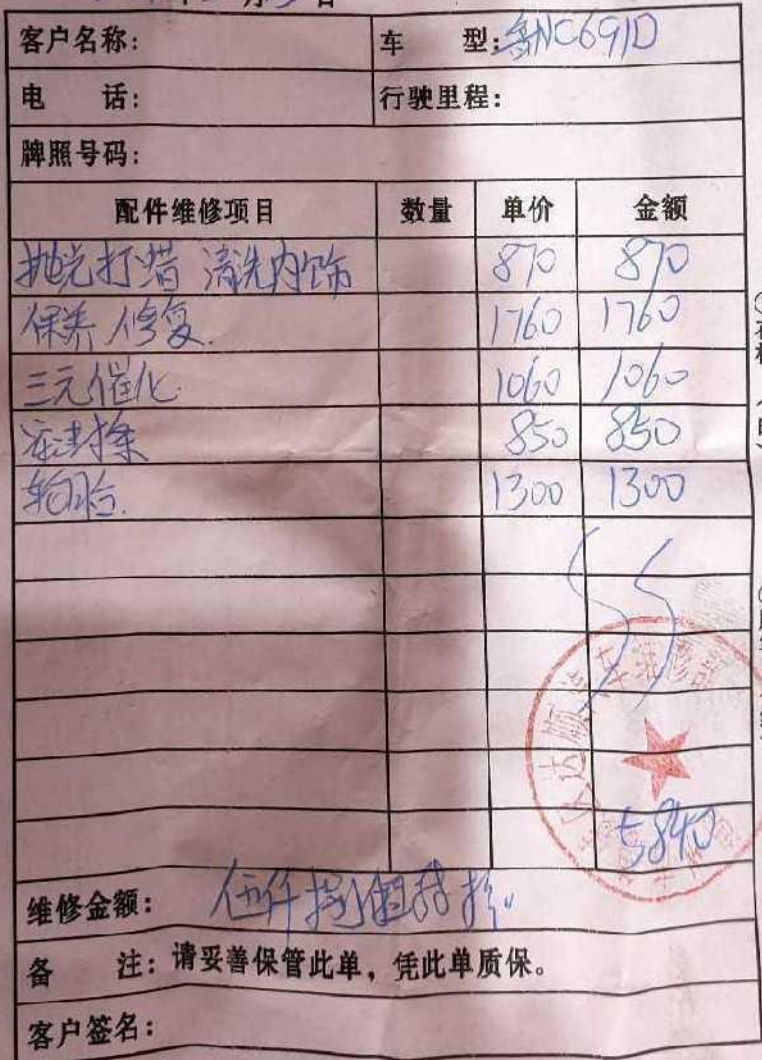 月 日
客户名称: 车 型: 鲁NC691D
电 话: 行驶里程:
牌照号码:
配件维修项目 数量 单价 金额
抛光打蜡 清洗内饰 870 870
保养 修复. 1760 1760
三元催化. 1060 1060
850 850
轮胎. 1300 1300
5840
维修金额: 伍仟捌佰
备 注: 请妥善保管此单, 凭此单质保。
客户签名: